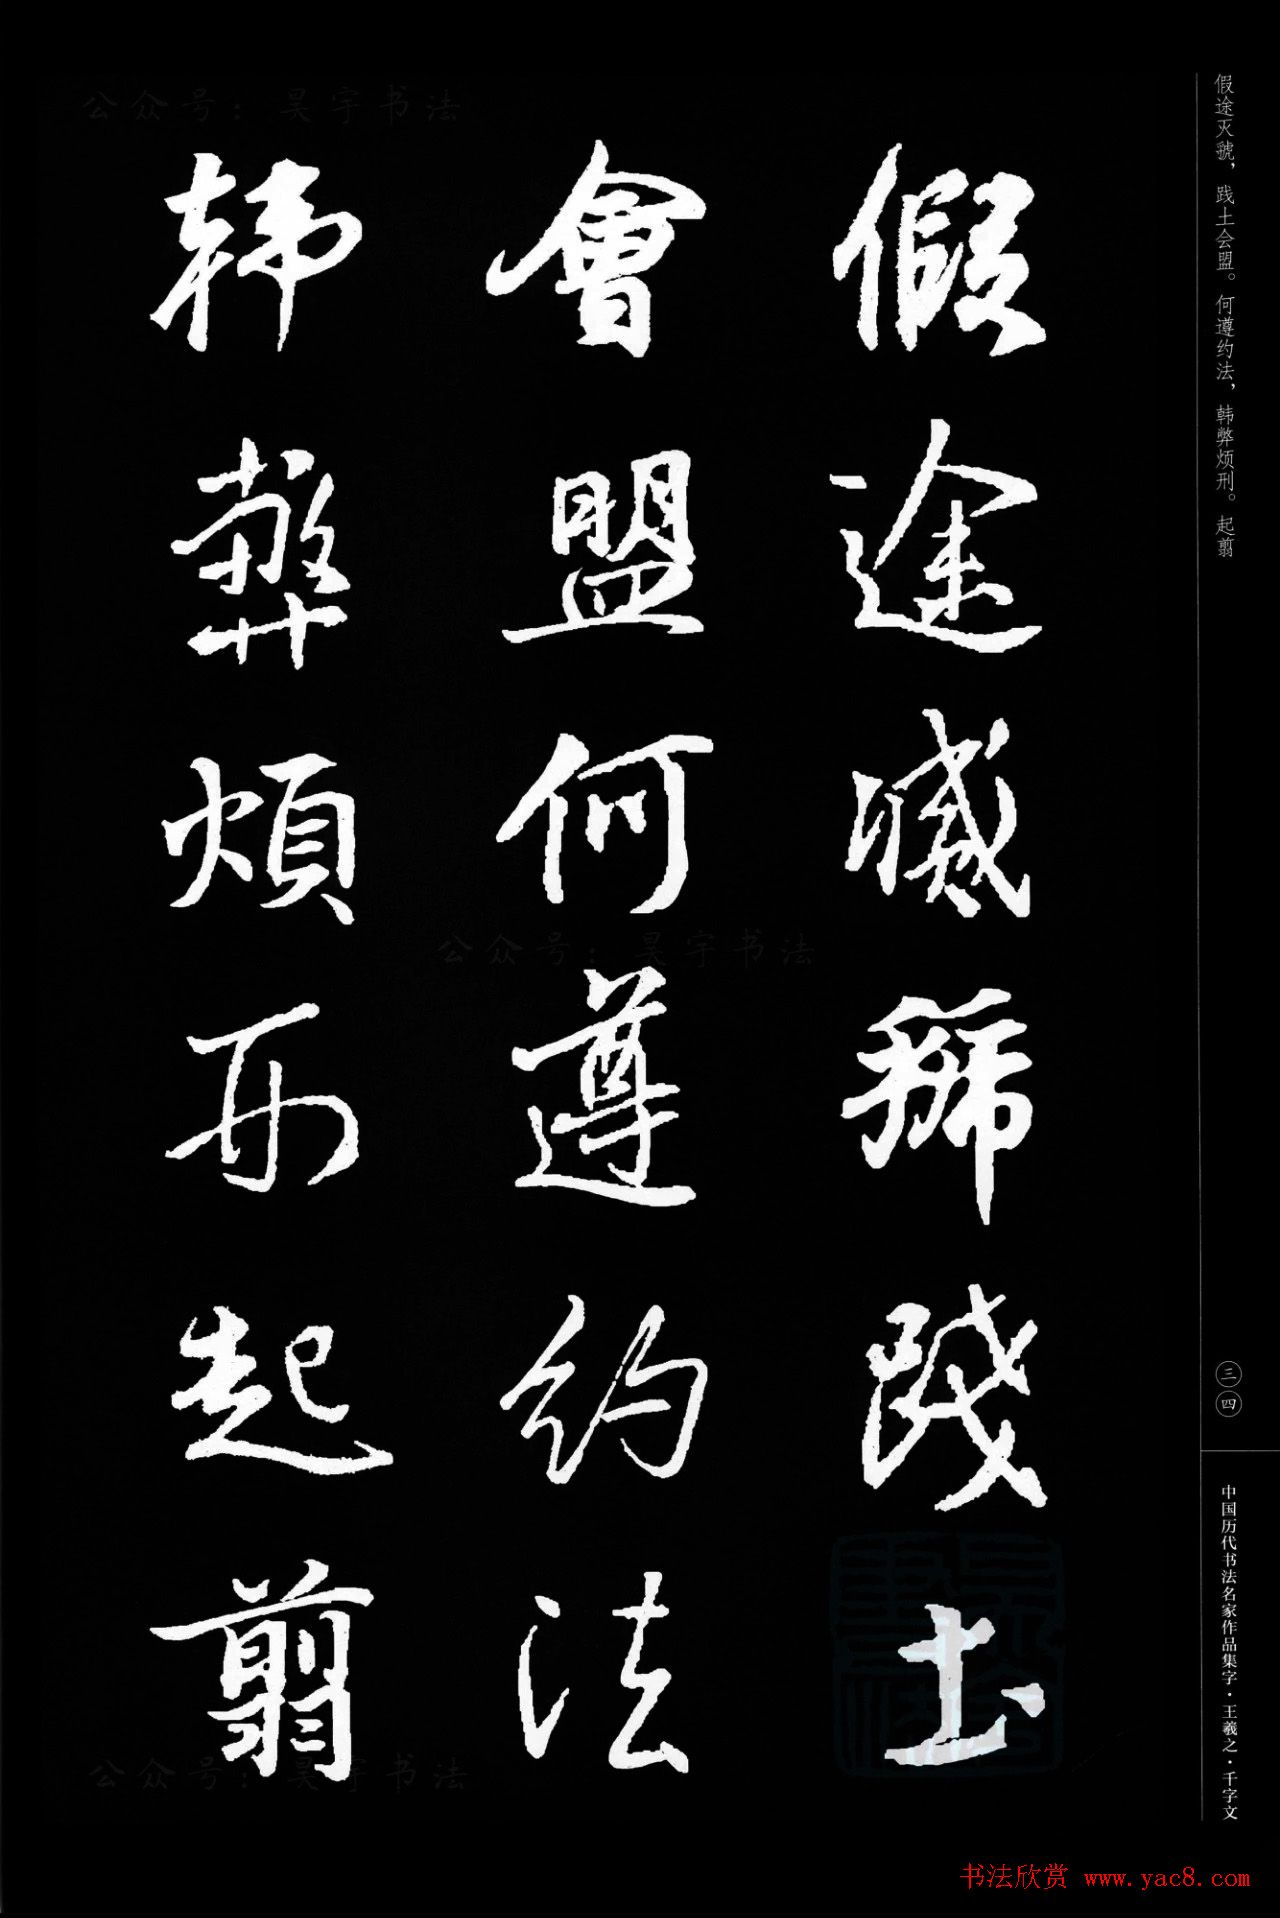 假途滅虢踐土
會盟何遵約法
韓弊煩刑起翦
假途灭虢，践土会盟。何遵约法，韩弊烦刑。起翦
三四
中国历代书法名家作品集字·王羲之·千字文
公众号：昊宇书法
公众号：昊宇书法
公众号：昊宇书法
书法欣赏 www.yac8.com